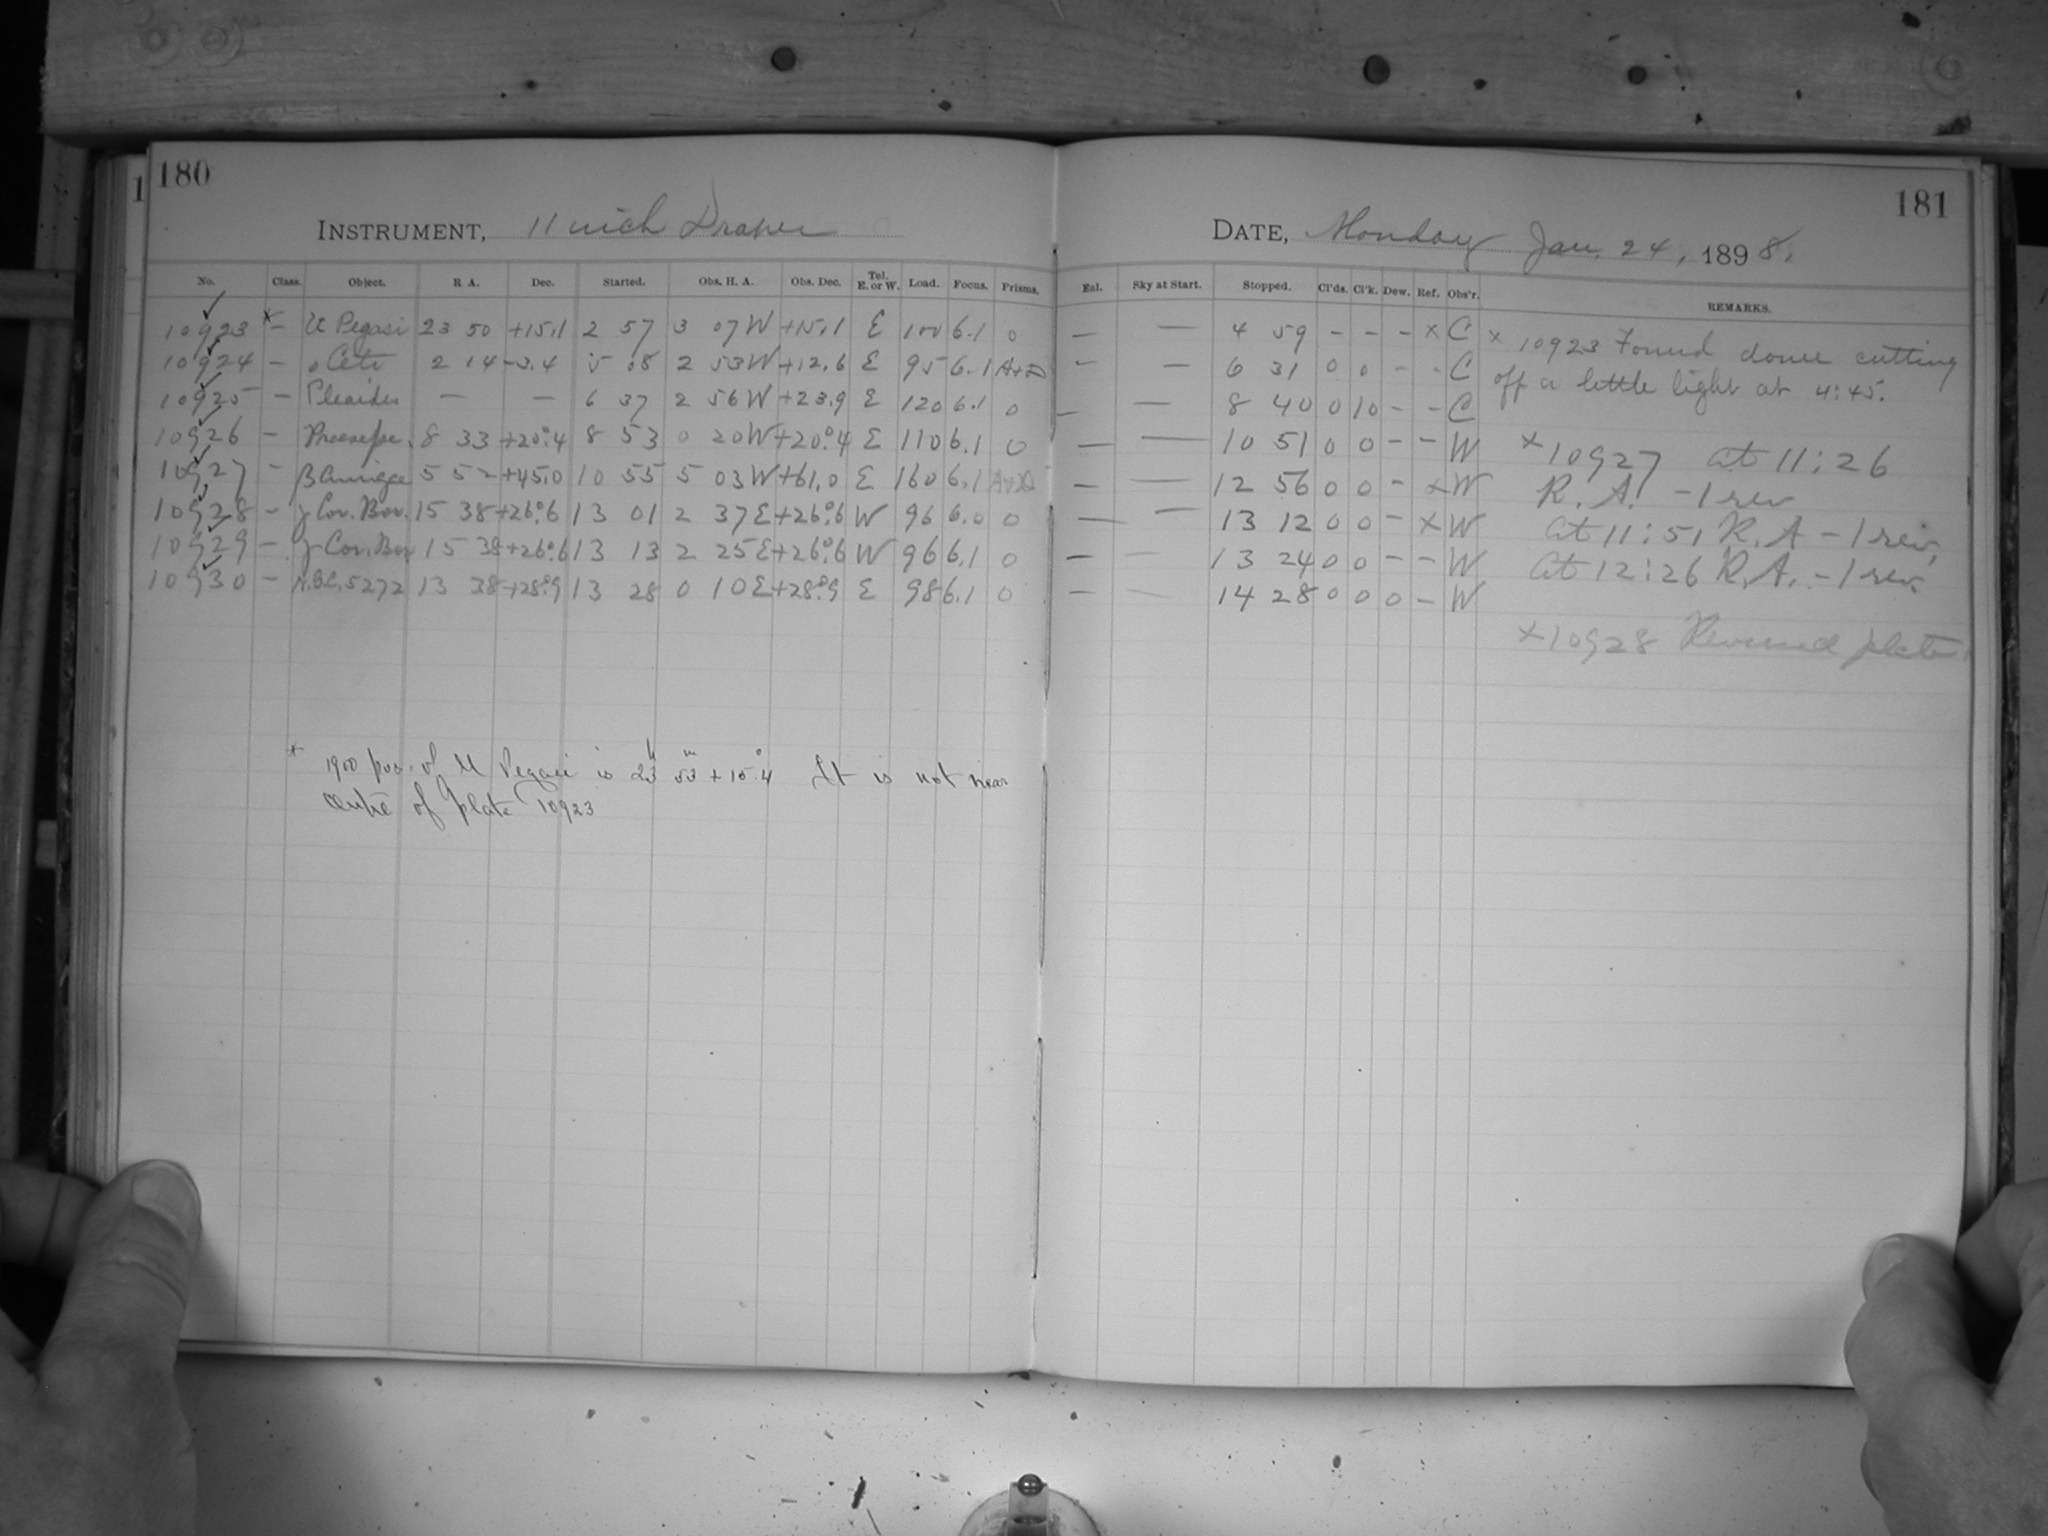 180
181
1
INSTRUMENT, 11 inch Draper
DATE, Monday Jan. 24, 1898.
No. Class. Object. R A. Dec. Started. Obs. H. A. Obs. Dec. Tel. E. or W. Load. Focus. Prisms. Enl. Sky at Start. Stopped. Cl'ds. Cl'k. Dew. Ref. Obs'r. REMARKS.
10923 x – U Pegasi 23 50 +15.1 2 57 3 07W +15.1 E 100 6.1 0 — — 4 59 – – – x C
10924 – o Ceti 2 14 -3.4 5 08 2 53W +12.6 E 95 6.1 A+D – — 6 31 0 0 – – C
10925 – Pleaides — — 6 37 2 56W +23.9 E 120 6.1 0 — — 8 40 0 10 – – C
10926 – Praesepe. 8 33 +20°.4 8 53 0 20W +20°.4 E 110 6.1 0 — — 10 51 0 0 – – W
10927 – β Aurigae 5 52 +45.0 10 55 5 03W +61.0 E 160 6.1 A+D — — 12 56 0 0 – x W
10928 – γ Cor. Bor. 15 38 +26°.6 13 01 2 37E +26°.6 W 96 6.0 0 — — 13 12 0 0 – x W
10929 – γ Cor. Bor 15 38 +26°.6 13 13 2 25E +26°.6 W 96 6.1 0 — — 13 24 0 0 – – W
10930 – N.G.C. 5272 13 38 +28°.9 13 28 0 10E +28°.9 E 98 6.1 0 — — 14 28 0 0 0 – W
x 10923 Found dome cutting
off a little light at 4:45.
x 10927 at 11:26
R. A. – 1 rev
at 11:51 R. A – 1 rev,
at 12:26 R. A. – 1 rev.
x 10928 Reversed plate.
x 1900 pos. of U Pegasi is 23h 53m + 15°.4 It is not near
centre of plate 10923